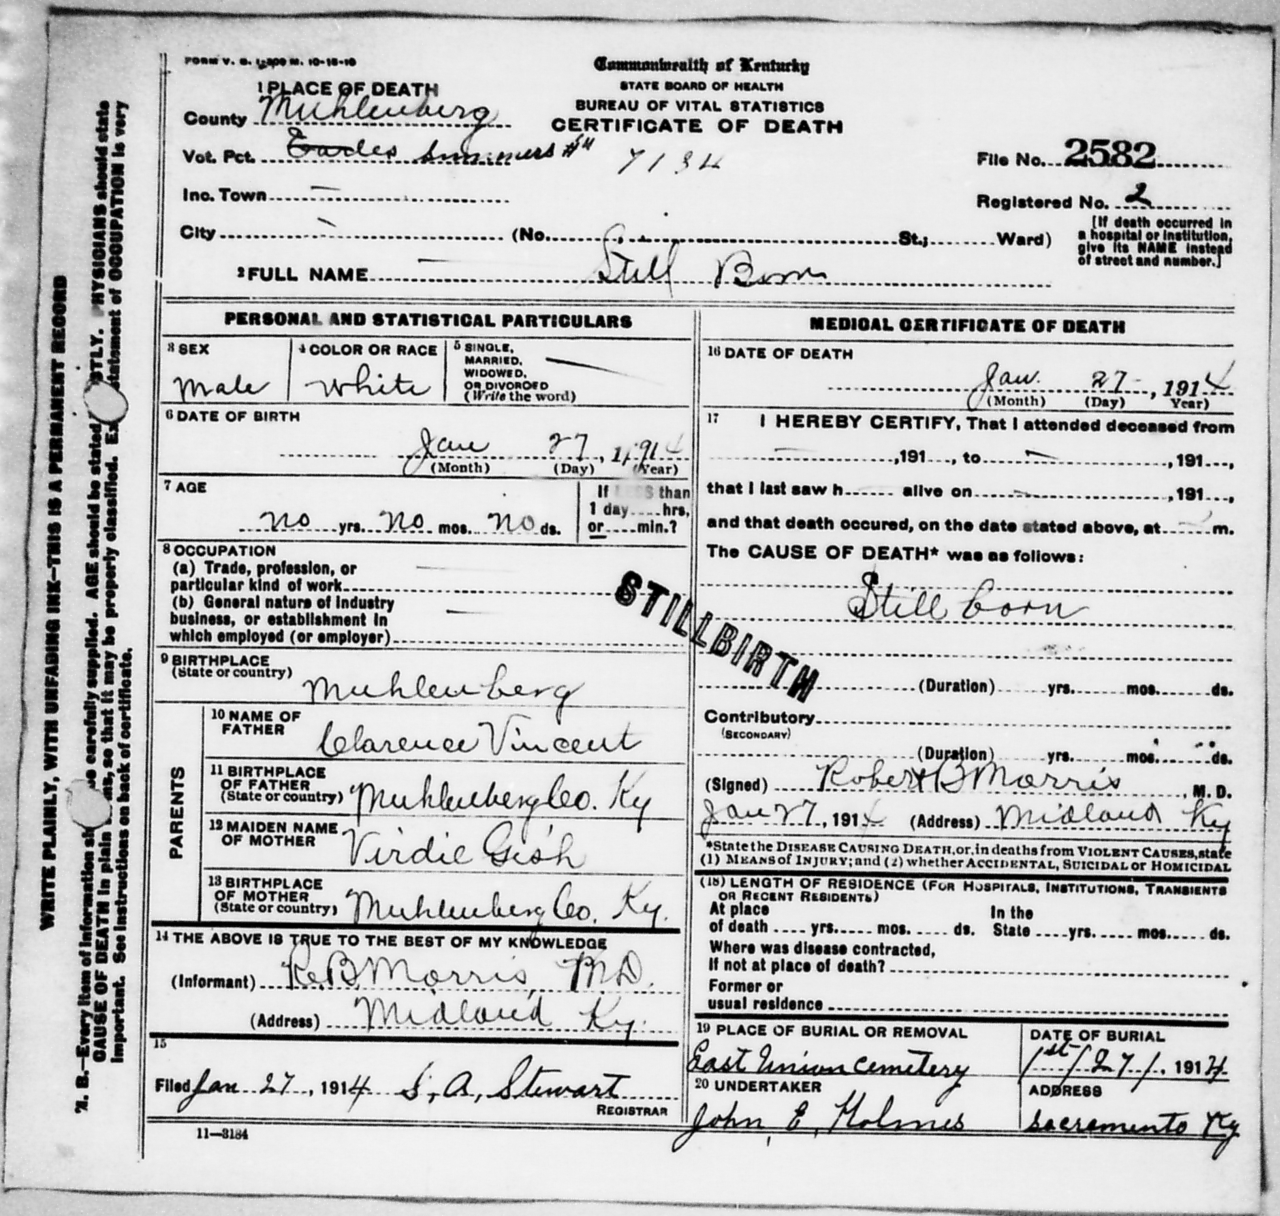 FORM V. S. 1-200 M. 10-15-10
Commonwealth of Kentucky
STATE BOARD OF HEALTH
BUREAU OF VITAL STATISTICS
CERTIFICATE OF DEATH
1 PLACE OF DEATH
County Muhlenberg
Vot. Pct. Earles Summers #4
7134
File No. 2582
Inc. Town
Registered No. 2
City (No. St.; Ward)
[If death occurred in
a hospital or institution,
give its NAME instead
of street and number.]
2 FULL NAME Still Born
PERSONAL AND STATISTICAL PARTICULARS
3 SEX
Male
4 COLOR OR RACE
White
5 SINGLE,
MARRIED,
WIDOWED,
OR DIVORCED
(Write the word)
6 DATE OF BIRTH
Jan 27, 1914
(Month) (Day) (Year)
7 AGE
If LESS than
1 day....hrs,
or....min.?
no yrs. no mos. no ds.
8 OCCUPATION
(a) Trade, profession, or
particular kind of work
(b) General nature of industry
business, or establishment in
which employed (or employer)
9 BIRTHPLACE
(State or country)
Muhlenberg
PARENTS
10 NAME OF
FATHER
Clarence Vincent
11 BIRTHPLACE
OF FATHER
(State or country)
Muhlenberg Co. Ky
12 MAIDEN NAME
OF MOTHER
Virdie Gish
13 BIRTHPLACE
OF MOTHER
(State or country)
Muhlenberg Co. Ky.
14 THE ABOVE IS TRUE TO THE BEST OF MY KNOWLEDGE
(Informant) R.B. Morris, M.D.
(Address) Midland Ky.
15
Filed Jan 27, 1914 S. A. Stewart
REGISTRAR
11—3184
MEDICAL CERTIFICATE OF DEATH
16 DATE OF DEATH
Jan. 27, 1914
(Month) (Day) Year)
17 I HEREBY CERTIFY, That I attended deceased from
,191..., to ,191...,
that I last saw h alive on ,191...,
and that death occured, on the date stated above, at m.
The CAUSE OF DEATH* was as follows:
Still born
STILLBIRTH
(Duration) yrs. mos. ds.
Contributory
(SECONDARY)
(Duration) yrs. mos. ds.
(Signed) Robert B Morris, M.D.
Jan 27, 1914 (Address) Midland Ky
*State the DISEASE CAUSING DEATH, or, in deaths from VIOLENT CAUSES, state
(1) MEANS of INJURY; and (2) whether ACCIDENTAL, SUICIDAL or HOMICIDAL
(18) LENGTH OF RESIDENCE (FOR HOSPITALS, INSTITUTIONS, TRANSIENTS
OR RECENT RESIDENTS)
At place
of death .... yrs. mos. ds.
In the
State .... yrs. mos. ds.
Where was disease contracted,
If not at place of death?
Former or
usual residence
19 PLACE OF BURIAL OR REMOVAL
East Union Cemetery
DATE OF BURIAL
1st/27/, 1914
20 UNDERTAKER
John E. Holmes
ADDRESS
Sacramento Ky
WRITE PLAINLY, WITH UNFADING INK—THIS IS A PERMANENT RECORD
N. B.—Every item of information be carefully supplied. AGE should be stated PHYSICIANS should state
CAUSE OF DEATH in plain so that it may be properly classified. statement of OCCUPATION is very
important. See instructions on back of certificate.